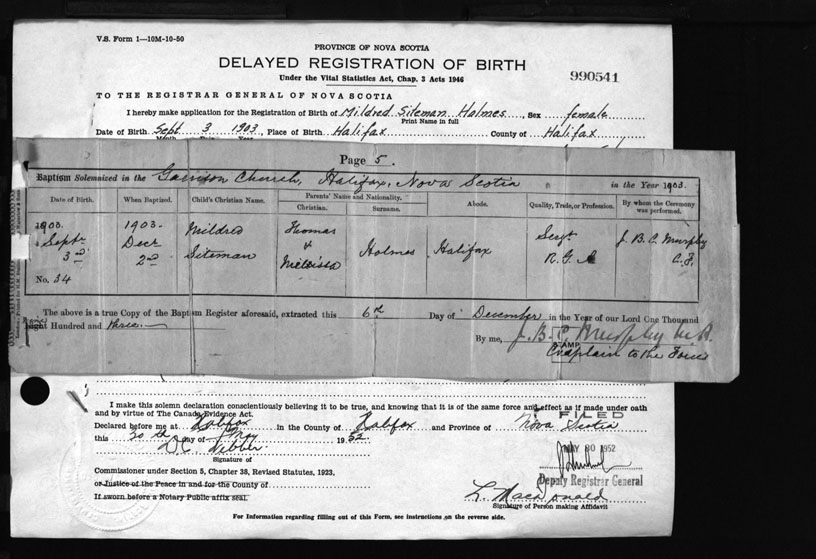 V.S. Form 1—10M-10-50
PROVINCE OF NOVA SCOTIA
DELAYED REGISTRATION OF BIRTH
Under the Vital Statistics Act, Chap. 3 Acts 1946
990541
TO THE REGISTRAR GENERAL OF NOVA SCOTIA
I hereby make application for the Registration of Birth of Mildred Siteman Holmes, Sex female
Print Name in full
Date of Birth Sept 3 1903, Place of Birth Halifax County of Halifax
Page 5.
Baptism Solemnized in the Garrison Church, Halifax, Nova Scotia in the Year 1903.
Date of Birth. When Baptized. Child's Christian Name. Parents' Name and Nationality. Abode. Quality, Trade, or Profession. By whom the Ceremony was performed.
Christian. Surname.
1903. 1903. Mildred Thomas Sergt J. B. C. Murphy
Septr Decr Siteman & Holmes Halifax R.G.A C.F.
3rd 2nd Melissa
No. 34
The above is a true Copy of the Baptism Register aforesaid, extracted this 6th Day of December in the Year of our Lord One Thousand
Hundred and three.—
By me, J. B. C. Murphy M.A.
STAMP
Chaplain to the Forces
I make this solemn declaration conscientiously believing it to be true, and knowing that it is of the same force and effect as if made under oath
and by virtue of The Canada Evidence Act.
FILED
Declared before me at Halifax in the County of Halifax and Province of Nova Scotia
this 30th day of May 1952
MAY 30 1952
Signature of
Commissioner under Section 5, Chapter 38, Revised Statutes, 1923,
Deputy Registrar General
or Justice of the Peace in and for the County of
L. MacDonald
If sworn before a Notary Public affix seal.
Signature of Person making Affidavit
For Information regarding filling out of this Form, see instructions on the reverse side.